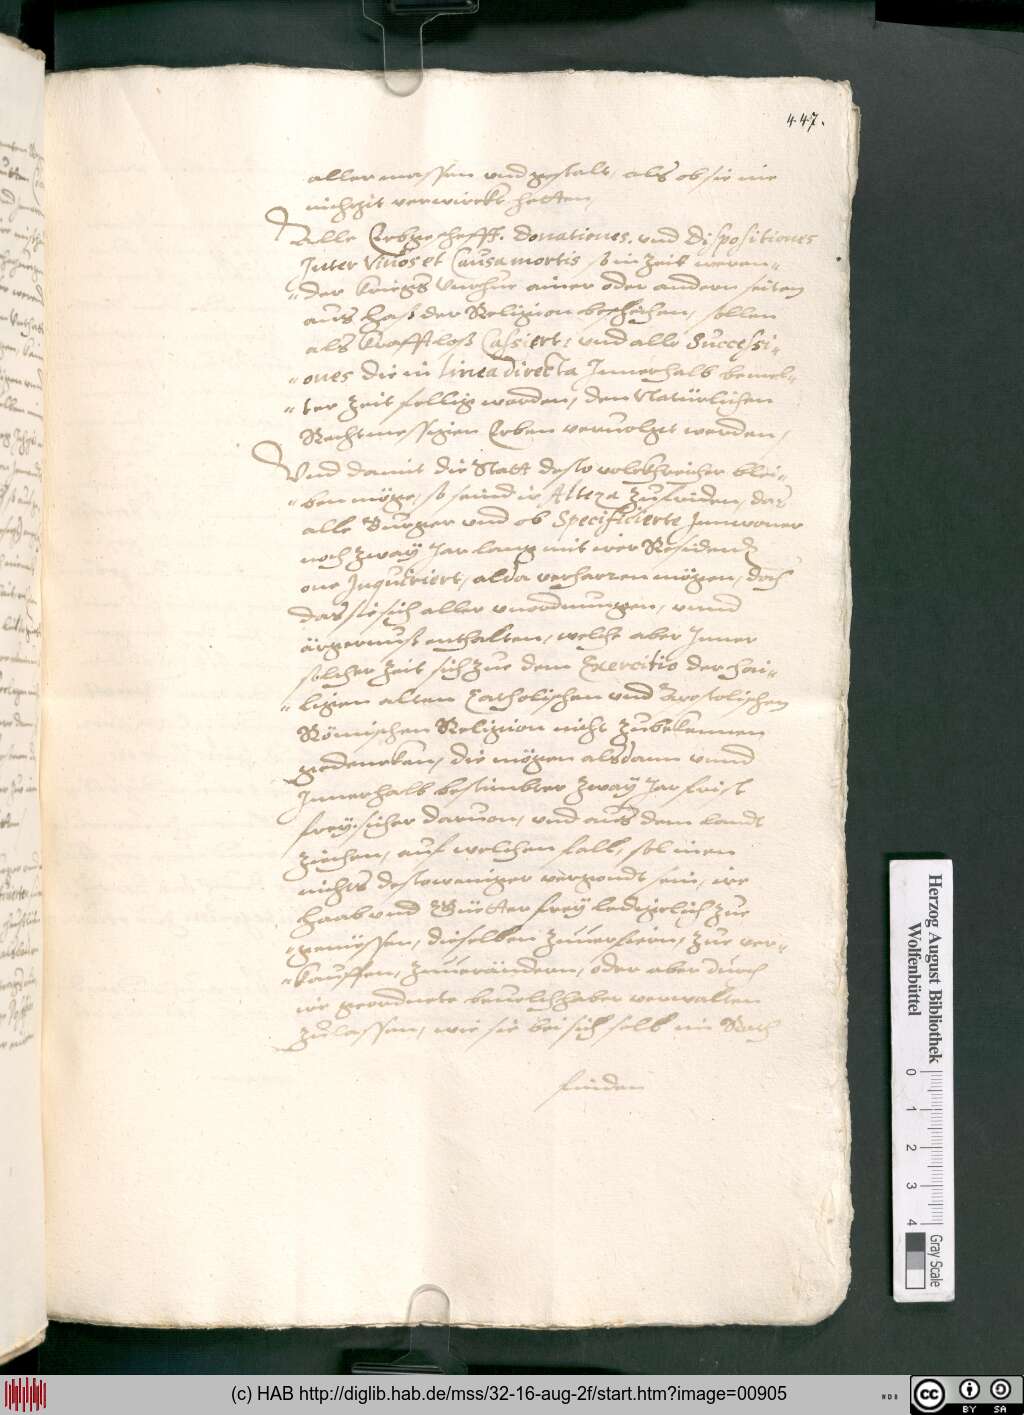 447.
aller massen und gestalt, als ob sie nie
nichzit verwirckt hetten,
Alle Erbgescheff. donationes. und dispositiones
Inter vivos et Causa mortis so in zeit weren=
=der kriegs Unrhue ainer oder andern seiten
aus haß der Religion beschehen, sollen
als krafftloß Cassiert: und alle Successi=
=ones die in linea directa Innerhalb bemel=
=ter zeit fellig worden, den Natürlichen
Rechtmessigen Erben vervolgt werden,
Und damit die Statt desto volckhreicher blei=
=ben möge, so seind ir Alteza zufriden, das
alle Burger und ob Specificierte Innwoner
noch zway Jar lang mit irer Residentz
one Inquiriert, alda verharren mögen, doch
das sie sich aller unordnungen, unnd
ärgernuß enthalten, welche aber Inner
solcher zeit sich zue dem Exercitio der hai=
=ligen alten Catholischen und Apostolischen
Römischen Religion nicht zubekennen
gedencken, die mögen alsdann unnd
Innerhalb bestimbter zway Jar frist
frey sicher darvon, und aus dem landt
ziehen, auf welchen fall, sol inen
nichts destoweniger vergondt sein, ire
Haab und Güetter frey lediglich zue
=geniessen, dieselben zuverfiern, zue ver=
=kauffen, zuverändern, oder aber durch
ire geordnete bevelchhaber verwalten
zulassen, wie sie bei sich selb im Rath
finden
Herzog August Bibliothek
Wolfenbüttel
0 1 2 3 4
Gray Scale
(c) HAB http://diglib.hab.de/mss/32-16-aug-2f/start.htm?image=00905
cc BY SA